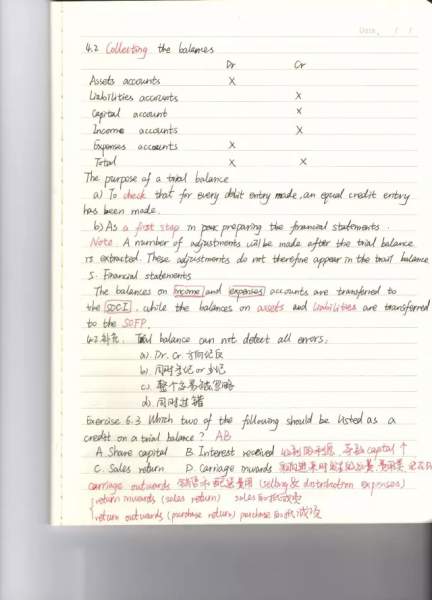 Date. / /
4.2 Collecting the balances
Dr Cr
Assets accounts X
Liabilities accounts X
Capital account X
Income accounts X
Expenses accounts X
Total X X
The purpose of a trial balance
a) To check that for every debit entry made, an equal credit entry
has been made.
b) As a first step in preparing the financial statements.
Note. A number of adjustments will be made after the trial balance
is extracted. These adjustments do not therefore appear in the trail balance
5. Financial statements
The balances on income and expenses accounts are transferred to
the SOCI, while the balances on assets and liabilities are transferred
to the SOFP.
4.2补充. Trial balance can not detect all errors;
a). Dr. Cr. 方向记反
b). 同时多记 or 少记
c). 整个交易被忽略
d). 同时过错
Exercise 6.3 Which two of the following should be listed as a
credit on a trial balance? AB
A Share capital B Interest received 收到的利息, 导致 capital 个
C. Sales return D Carriage inwards
carriage outwards 销售和配送费用 (selling & distribution expenses)
return inwards (sales return) sales的抵减项
return outwards (purchase return) purchase的抵减项